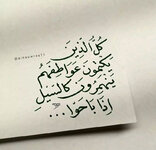 كل الذين
يكتمون عواطفهم
ينهمرون كالسيل
إذا باحوا...